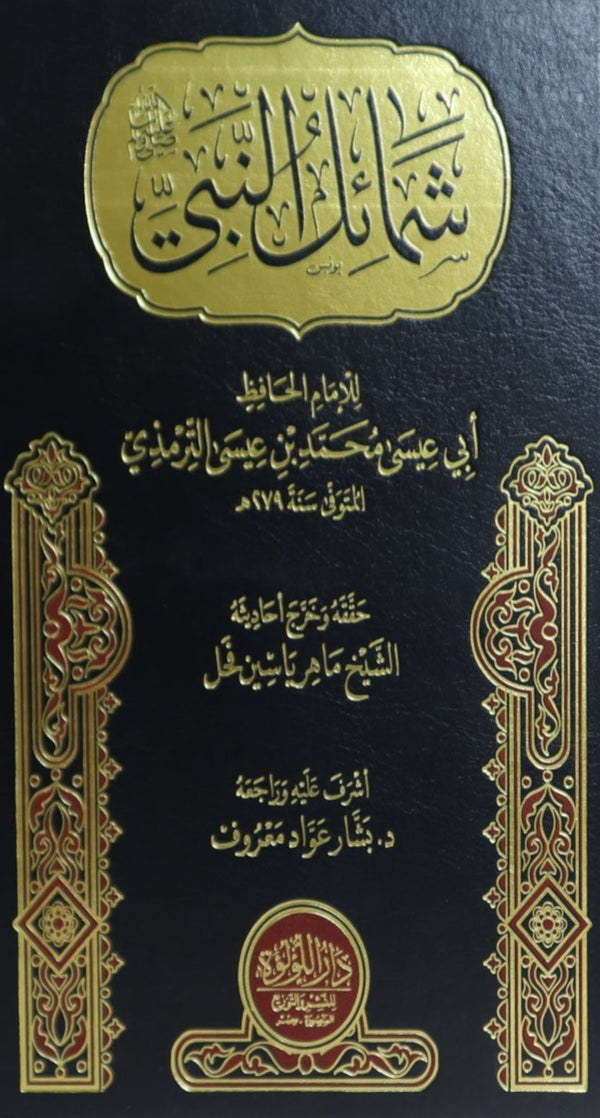 شَمَائِلُ النَّبِيِّ
صلى الله عليه وسلم
يونس
لِلْإِمَامِ الحَافِظِ
أَبِي عِيسَى مُحَمَّدِ بْنِ عِيسَى التِّرْمِذِيّ
المُتَوَفَّى سَنَةَ ٢٧٩هـ
حَقَّقَهُ وَخَرَّجَ أَحَادِيثَهُ
الشَّيْخ مَاهِر يَاسِين فَحْل
أَشْرَفَ عَلَيْهِ وَرَاجَعَهُ
د. بَشَّار عَوَّاد مَعْرُوف
دَارُ اللُّؤْلُؤَةِ
للنشر والتوزيع
المنصورة - مصر